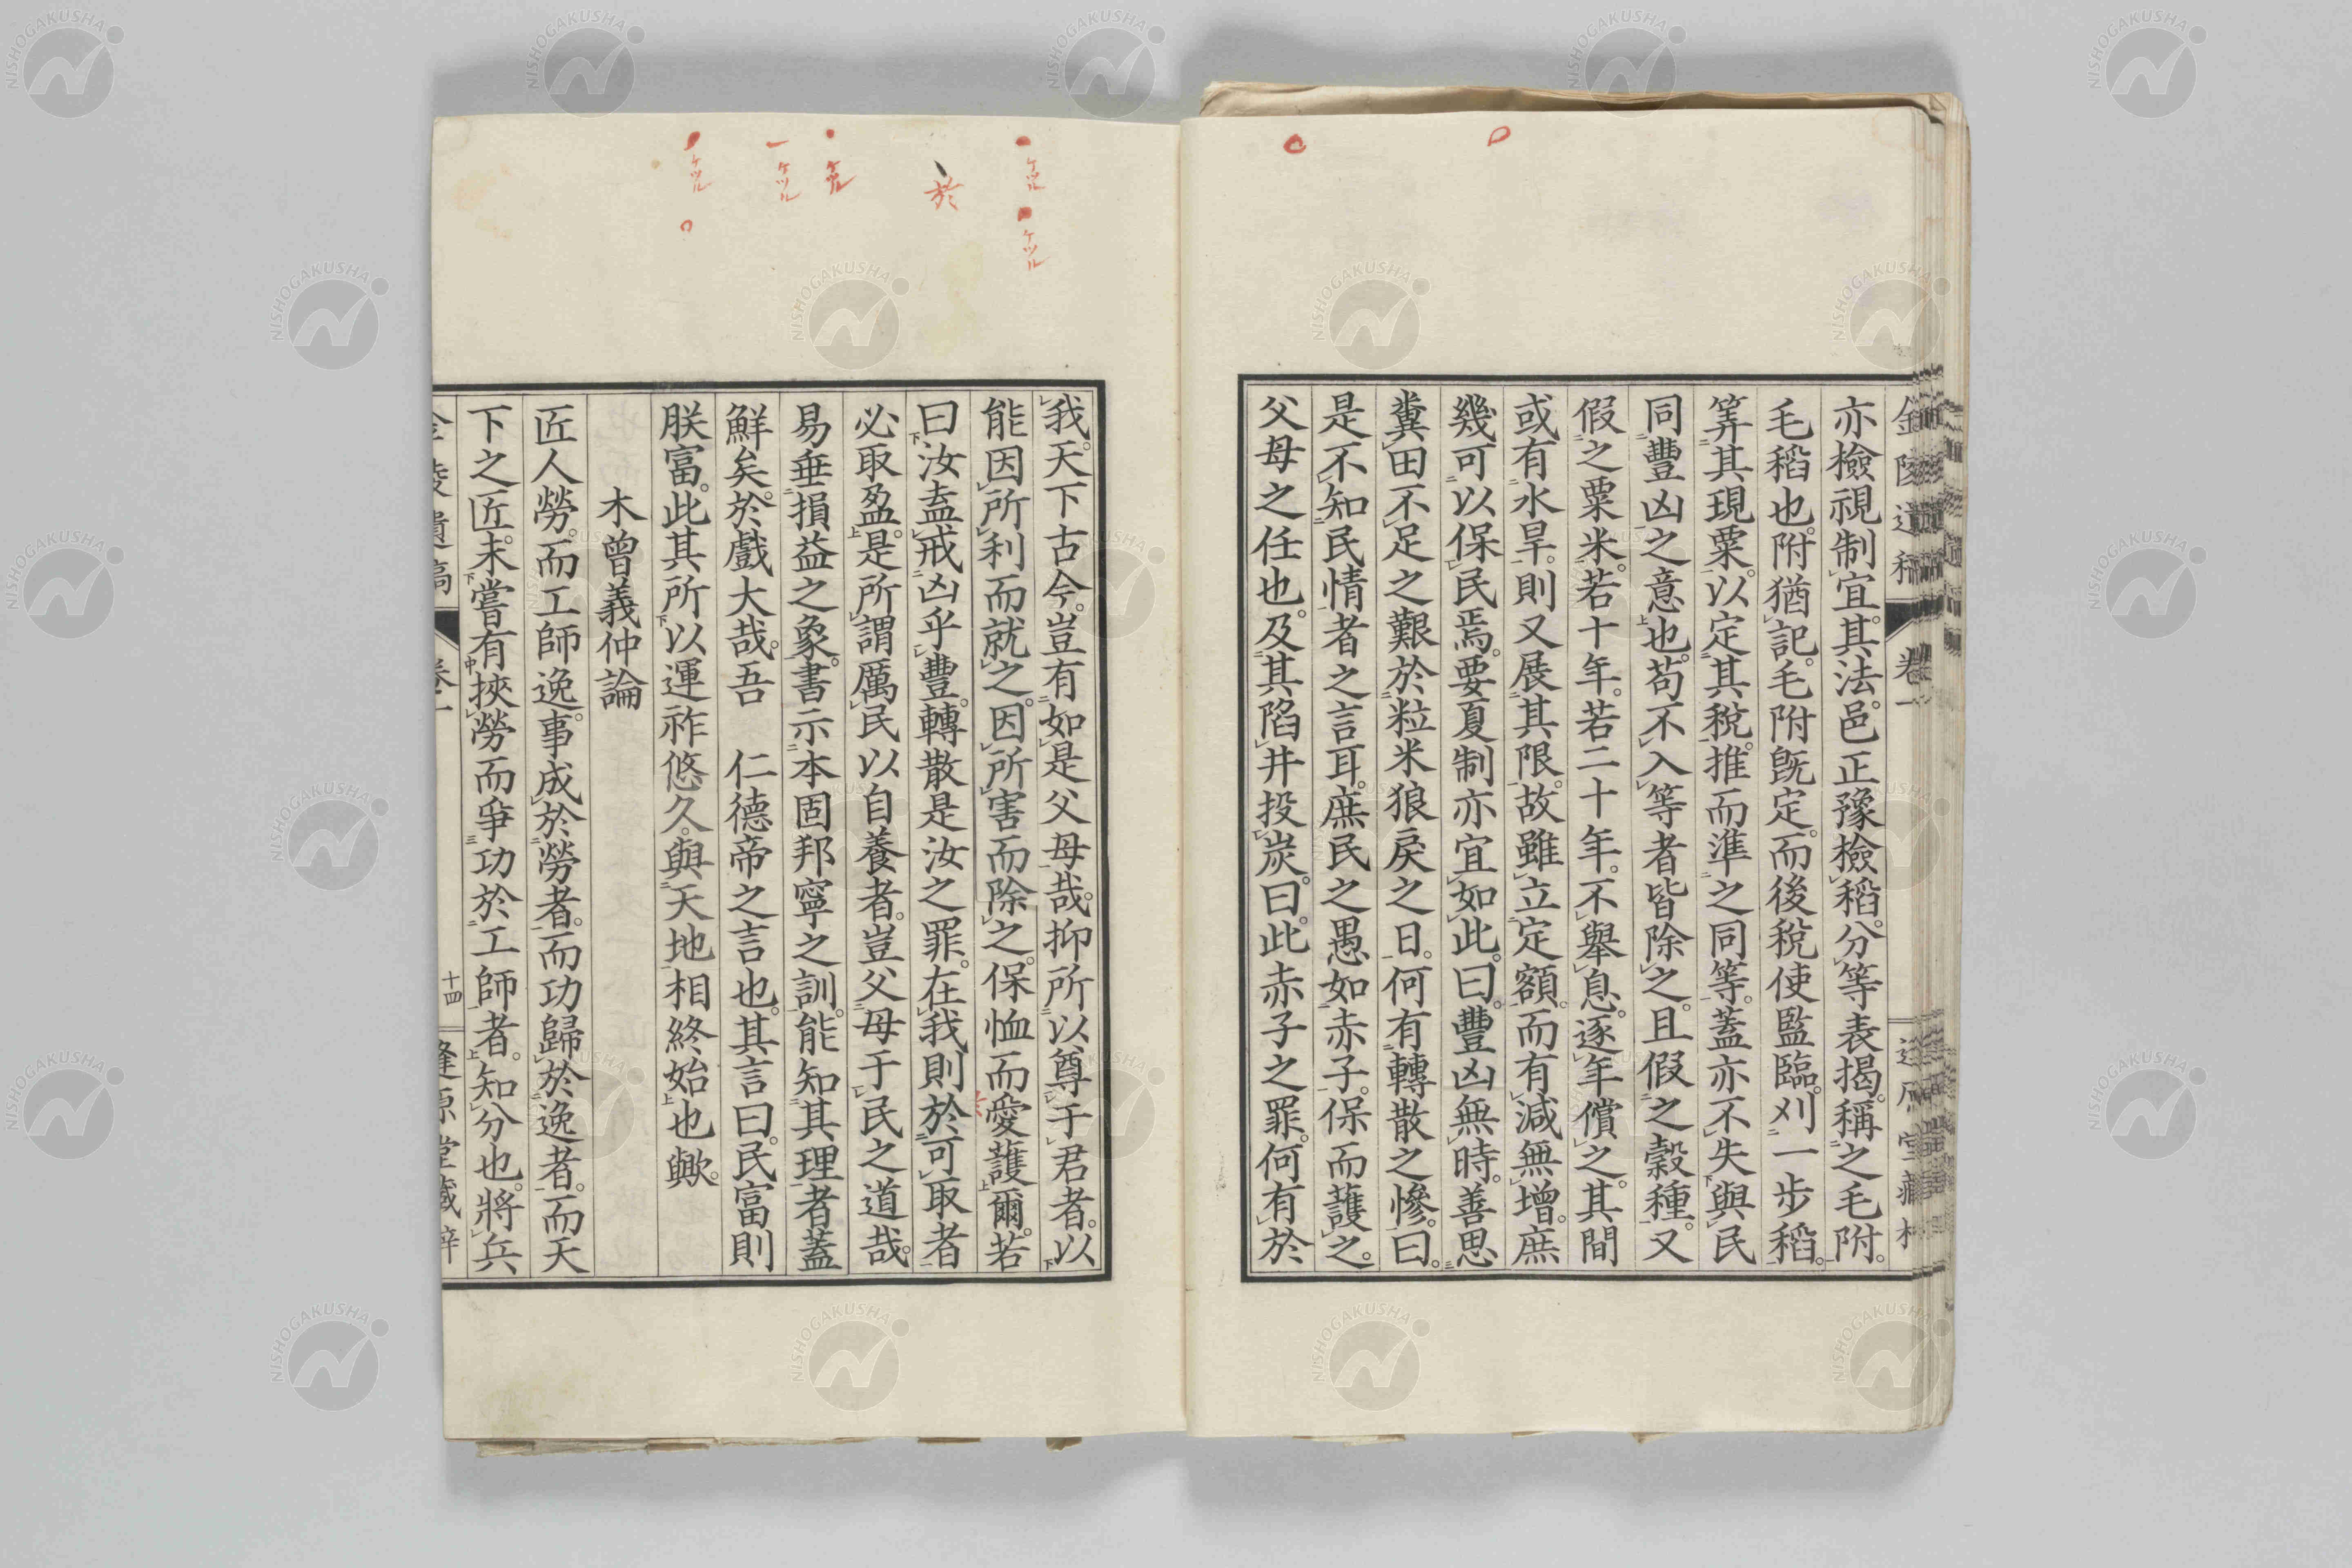 亦檢視制宜。其法邑正豫檢稻。分等表揭。稱之毛附。
毛稻也。附猶記。毛附旣定。而後稅使監臨。刈一步稻。
筭其現粟。以定其稅。推而準之同等。蓋亦不失與民
同豐凶之意也。苟不入等者皆除之。且假之穀種。又
假之粟米。若十年。若二十年。不舉息。逐年償之。其間
或有水旱。則又展其限。故雖立定額。而有減無增。庶
幾可以保民焉。要夏制亦宜如此。曰。豐凶無時。善思
糞田不足之艱於粒米狼戾之日。何有轉散之慘。曰。
是不知民情者之言耳。庶民之愚如赤子。保而護之。
父母之任也。及其陷井投炭。曰。此赤子之罪。何有於
我。天下古今。豈有如是父母哉。抑所以尊于君者。以
能因所利而就之。因所害而除之。保恤而愛護爾。若
曰汝盍戒凶乎豐。轉散是汝之罪。在我則於可取者
必取盈。是所謂厲民以自養者。豈父母于民之道哉。
易垂損益之象。書示本固邦寧之訓。能知其理者蓋
鮮矣。於戲大哉。吾　仁德帝之言也。其言曰。民富則
朕富。此其所以運祚悠久。與天地相終始也歟。
木曾義仲論
匠人勞。而工師逸。事成於勞者。而功歸於逸者。而天
下之匠。未嘗有挾勞而爭功於工師者。知分也。將兵
卷一
十四
ケツル
ケツル
於
ケツル
ケツル
ケツル
NISHOGAKUSHA